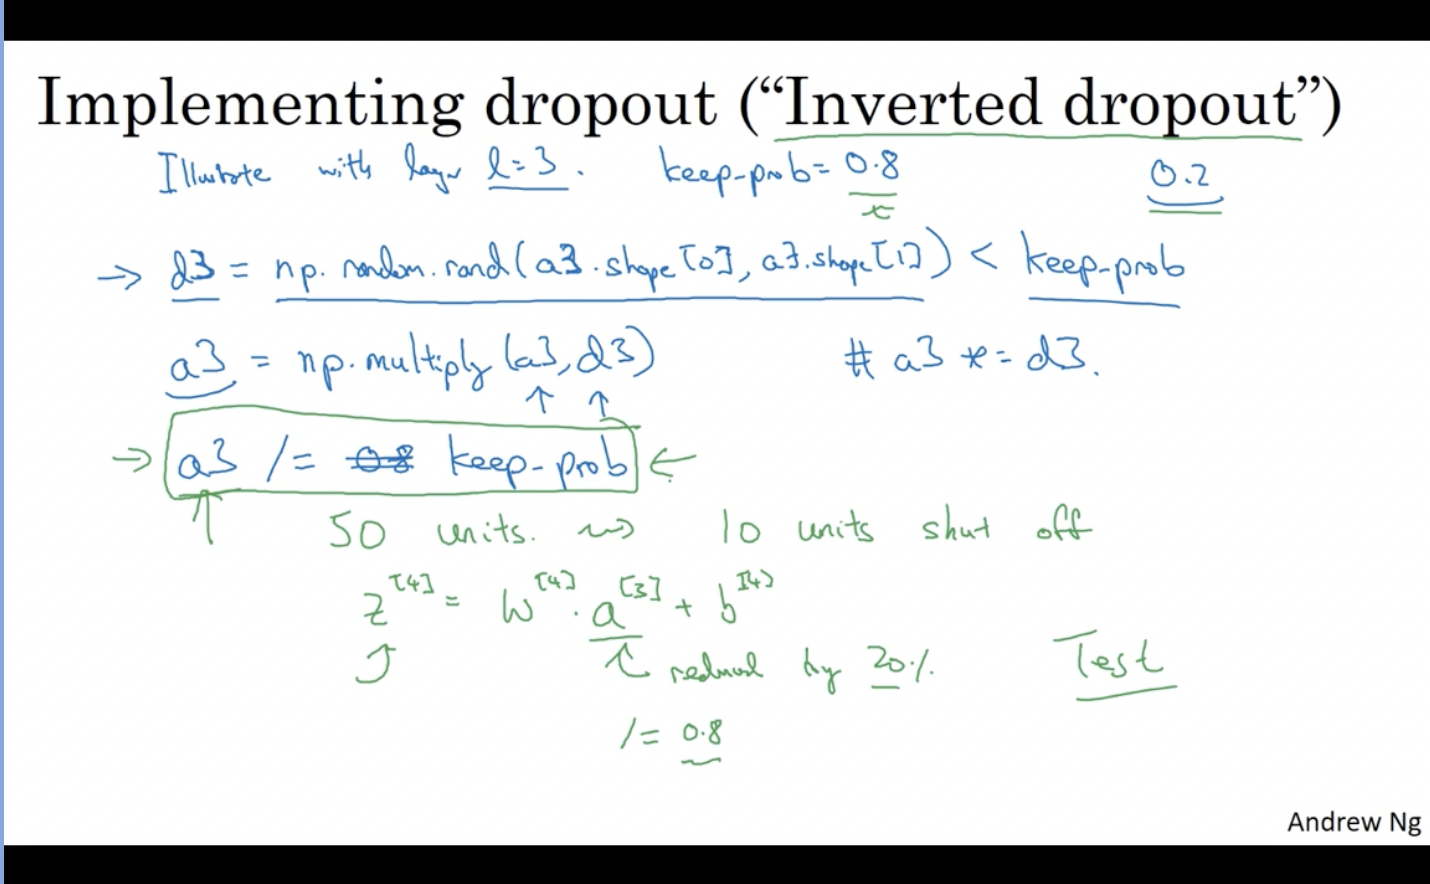 Implementing dropout (“Inverted dropout”)
Illustrate with layer l=3. keep-prob= 0.8 0.2
→ d3 = np.random.rand(a3.shape[0], a3.shape[1]) < keep-prob
a3 = np.multiply(a3, d3) # a3 *= d3.
→ a3 /= 0.8 keep-prob ←
50 units. ⇝ 10 units shut off
z[4] = W[4] . a[3] + b[4]
reduced by 20%. Test
/= 0.8
Andrew Ng